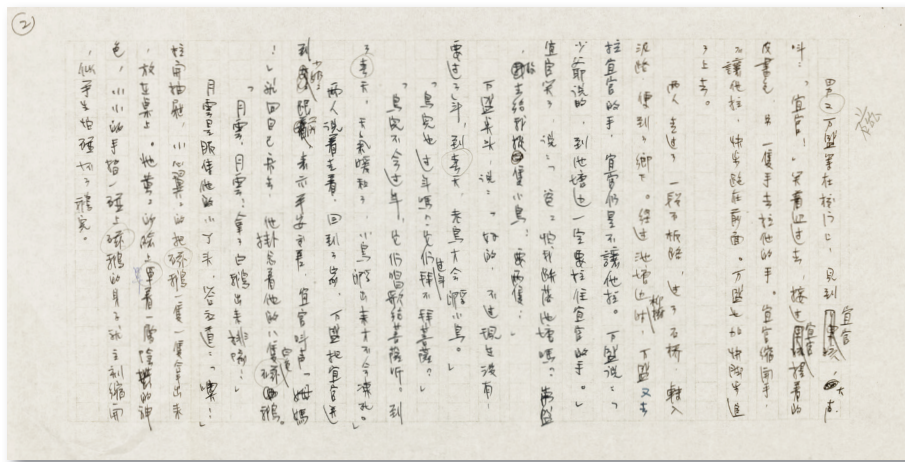 ②
男工万盛等在掛门口,見到宜官,大声
叫:「宜官!」笑着迎过去,接过宜官提着的
皮書包,另一隻手去拉他的手。宜官縮開手,
不讓他拉,快步跑在前面。万盛也加快脚步追
了上去。
两人走过了一段石板路,过了石橋,轉入
泥路,便到了鄉下。經过池塘边時,万盛又去
拉宜官的手,宜官仍是不讓他拉。万盛說:「
少爺說的,到池塘边一定要拉住宜官的手。」
宜官笑了,說:「爸爸怕我跌落池塘嗎?万盛
,你去給我捉隻小鳥,要兩隻。」
万盛点头,說:「好的,不过現在沒有,
要过了年,到春天,老鳥才会孵小鳥。」
「鳥兒也过年嗎?它們过年拜不拜菩薩?」
「鳥兒不会过年,它們唱歌給菩薩听。到
了春天,天氣暖和了,小鳥孵出來才不会凍死。」
两人說着走着,回到了家,万盛把宜官送
到少奶跟前,表示平安到着,宜官叫声:「姆媽
!」就回自己房去,他掛念着他的八隻白瓷鵝。
「月雲,月雲!拿了白鵝出來排隊!」
月雲是服侍他的小丫头,答应道:「噢!」
拉開抽屜,小心翼翼的把瓷鵝一隻一隻拿出來
,放在桌上。她黃黃的臉上罩着一層陰鬱的神
色,小小的手指一碰上瓷鵝的身子就立刻縮開
,似乎生怕碰切了鵝兒。